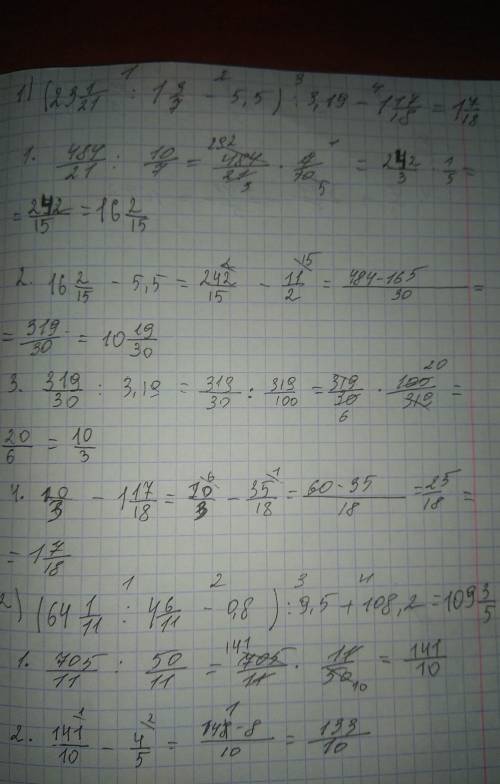 1) (23 1/21 : 1 3/7 - 5,5) : 3,19 - 1 17/18 = 1 7/18
1. 484/21 : 10/7 = 484/21 · 7/10 = 242/3 · 1/5 =
= 242/15 = 16 2/15
2. 16 2/15 - 5,5 = 242/15 - 11/2 = (484-165)/30 =
= 319/30 = 10 19/30
3. 319/30 : 3,19 = 319/30 : 319/100 = 319/30 · 100/319 =
20/6 = 10/3
4. 10/3 - 1 17/18 = 10/3 - 35/18 = (60-35)/18 = 25/18 =
= 1 7/18
2) (64 1/11 : 4 6/11 - 0,8) : 9,5 + 108,2 = 109 3/5
1. 705/11 : 50/11 = 705/11 · 11/50 = 141/10
2. 141/10 - 4/5 = (141-8)/10 = 133/10